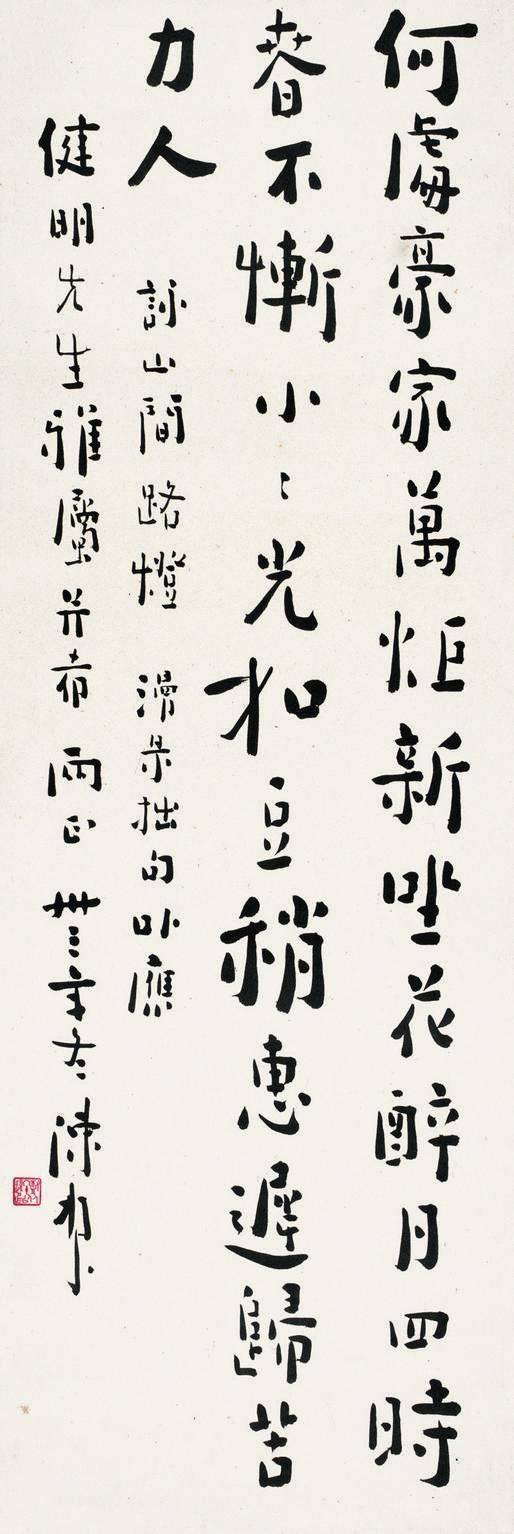 何處豪家萬炬新坐花醉月四時
春不慚小〻光如豆稍惠遲歸苦
力人 詠山間路燈 漫录拙句以應
健明先生雅屬并希兩正 卅三年冬 陳樹人